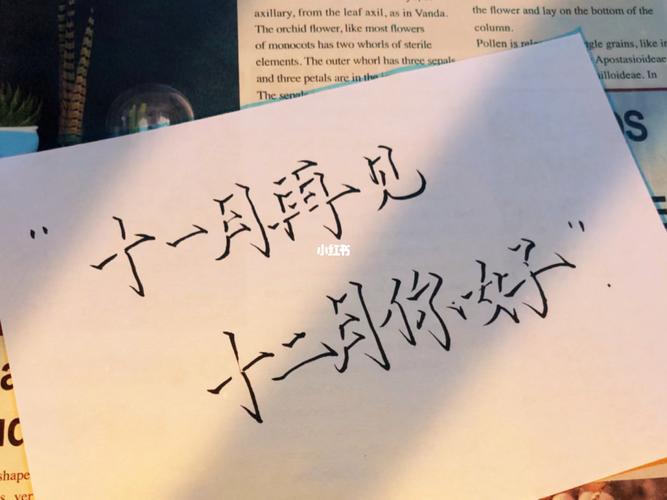 axillary, from the leaf axil, as in Vanda.
The orchid flower, like most flowers
of monocots has two whorls of sterile
elements. The outer whorl has three sepals
and three petals are in the
The sepals
the flower and lay on the bottom of the
column.
Pollen is
gle grains, like in
Apostasioideae
illoideae. In
"十一月再见
小红书
十二月你好".
shape